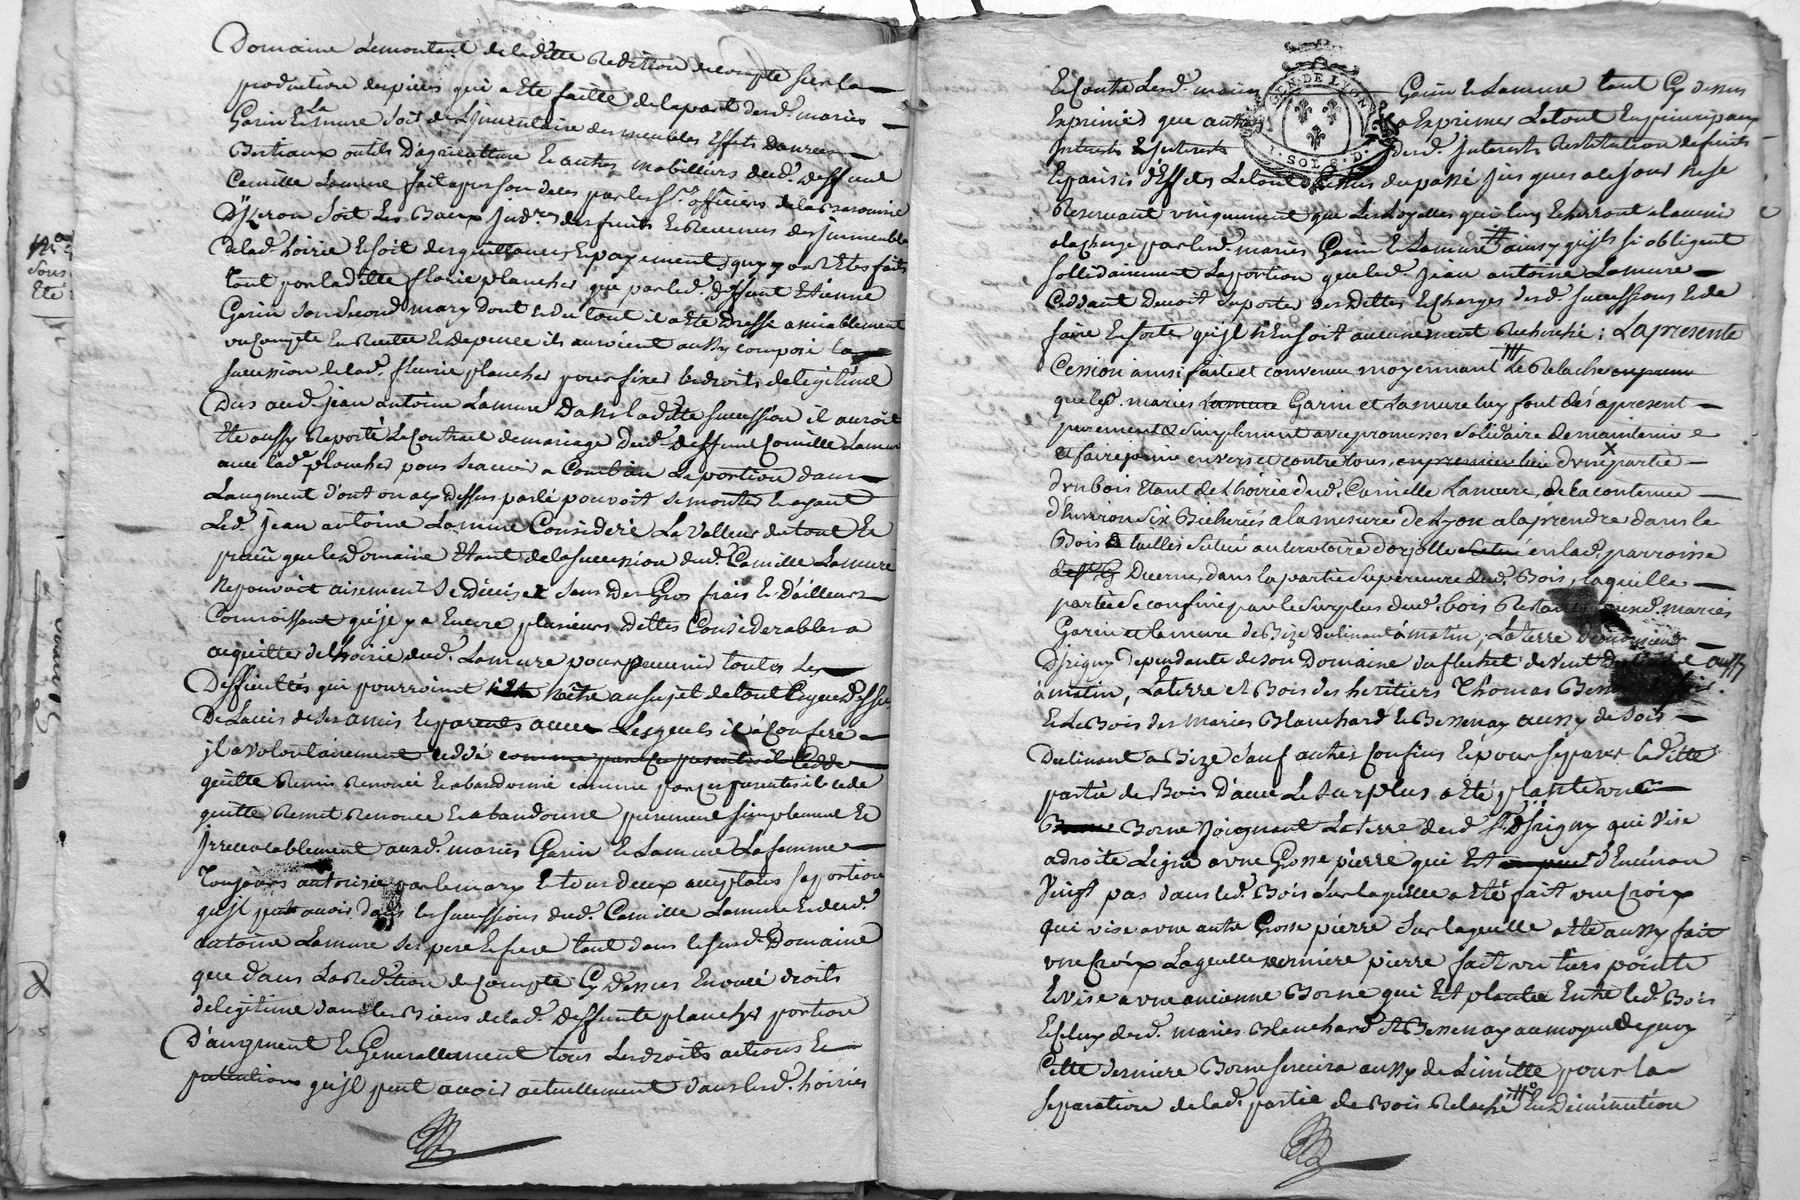 Domaine Lemontant de laditte Redition de compte sur la
production des pieces qui a Ete faitte de la part desd. mariés
Garin Lamure soit de Linventaire des meubles Effets Danrées
Bestiaux outils D'agriculture Et autres mobilliers dud. Deffunt
Camille Lamure fait apres son deces par les Srs. officiers de la Baronnie
D'yzeron Soit Les Baux Judres. des fruits Et Revenus des Immeubles
de lad. hoirie Et soit des quittances Et payements quy y ont Etes faits
tout par laditte fleurie plancher que par led. Deffunt Etienne
Garin Son Second mary Dont Et du tout il a Ete Dressé amiablement
un Compte En Recette Et Depence ils auroient aussy composé la
succession de lad. fleurie plancher pour fixer les droits de legitime
Dus aud. jean antoine Lamure Dans laditte Succession il auroit
Ete aussy Raporté Le Contrat de mariage dud. Deffunt Camille Lamure
avec lad. plancher pour Scavoir a Combien La portion dans
Laugment d'ont on a cy dessus parlé pouvoit Se monter Et ayant
Led. jean antoine Lamure Consideré La Valleur du tout Et
que le Domaine Etant de la Succession dud. Camille Lamure
Ne pouvoit aisement Se Diviser Sans Des Gros frais Et D'ailleurs
Connoissant qu'il y a Encore plusieurs Dettes Considerables a
acquitter de l'hoirie dud. Lamure pour prevenir toutes Les
Difficultés qui pourroient naitre au sujet de tout Ce que Dessus
De Lavis de Ses amis Et parents avec Lesquels il a Conferé
il a volontairement cedé comme par Ces presentes il Cedde
quitté Remis Renoncé Et abandonné comme par ces presentes il cede
quitte Remet Renonce Et abandonne purement simplement Et
Irrevocablement auxd. mariés Garin Et Lamure La femme
Toujours autorisée par le mary Et tous deux acceptans Sa portion
qu'il peut avoir dans les Successions dud. Camille Lamure Et dud.
antoine Lamure Ses pere Et frere tant dans le susd. Domaine
que dans La Redition de Compte Cy Dessus Enoncé droits
de legitime dans les Biens de lad. Deffunte plancher portion
D'augment Et Generallement tous Les droits actions Et
pretentions qu'il peut avoir actuellement dans lesd. hoiries
Et Contre Lesd. mariés Garin Et Lamure tant Cy dessus
Exprimés que autres a Exprimer Le tout En principaux
Interets Et Interets desd. Interets Restitution de fruits
Et parisis d'Effets Le tout dessus du passé Jusques a ce jour ne se
Reservant uniquement que Les Loyalles qui luy Echerront a lavenir
a la charge par lesd. mariés Garin Et Lamure ainsy qu'ils s'i obligent
sollidairement La portion que led. jean antoine Lamure
Ceddant devoit Suporter des Dettes Et charges desd. successions Et de
faire En sorte qu'il n'En soit aucunement Recherché : La presente
Cession ainsi faite et convenue moyennant Le Relache
que lesd. mariés Lamure Garin et Lamure luy font dès apresent
purement & simplement avec promesses Solidaire de maintenir
et faire jouir envers et contre tous, en premier lieu d'une partie
d'un bois Etant de L'hoirie dud. Camille Lamure, de la contenue
d'Environ Six Bicherées a la mesure de Lyon a la prendre dans le
Bois a tailles Scitué au territoire d'orjolle Scitué en lad. parroisse
Duerne, dans la partie Superieure dud. Bois, laquelle
partie Se confine par le Surplus dud. bois Restant auxd. mariés
Garin et Lamure de Bize declinant à matin, La terre
D'jrigny Dependante de son Domaine du flechet de Vent aussy
à matin, La terre et Bois des heritiers Thomas
Et Le Bois des mariés Blanchard Et Bessenay aussy de Soir
Declinant a Bize Sauf autres Confins Et pour Separer laditte
partie de Bois D'avec Le Surplus a Eté plante une
Borne Joignant La terre dud. Sr. D'jrigny qui Vise
a droite Ligne a une Grosse pierre qui Est d'Environ
Vingt pas dans led. Bois Sur laquelle a Eté fait une Croix
qui vise a une autre Grosse pierre Sur laquelle a Ete aussy fait
une Croix Laquelle derniere pierre fait un tiers pointe
Et vise a une ancienne Borne qui Est plantée Entre led. Bois
Et Celuy desd. mariés Blanchard Et Bessenay au moyen de quoy
Cette derniere Borne Servira aussy de Limitte pour la
separation de lad. partie de Bois Relaché En Diminution
GEN. DE LYON
1. SOL 8. D.